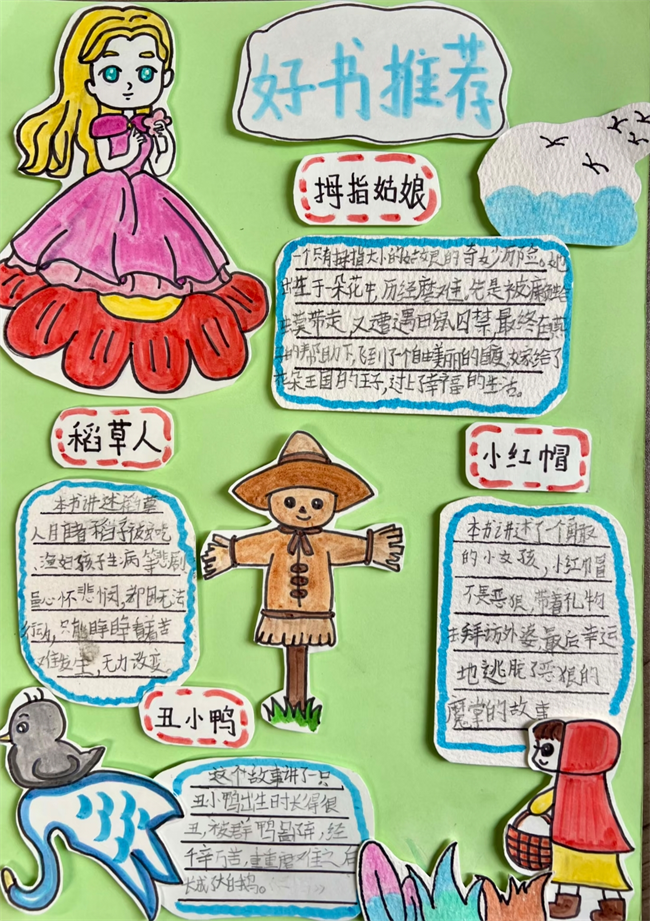 好书推荐
拇指姑娘
一个只有拇指大小的姑娘的奇妙历险。她
出生于一朵花中,历经磨难。先是被癞蛤蟆
带走,又遭遇田鼠囚禁,最终在燕
的帮助下,飞到了一个自由美丽的国度,嫁给了
花朵王国的王子,过上了幸福的生活。
稻草人
本书讲述稻草
人目睹稻子被虫吃
渔妇孩子生病等悲剧
虽心怀悲悯,却因无法
行动,只能眼睁睁看着苦
难发生,无力改变
小红帽
本书讲述了个勇敢
的小女孩,小红帽
不畏恶狼,带着礼物
去拜访外婆,最后幸运
地逃脱了恶狼的
魔掌的故事
丑小鸭
这个故事讲了一只
丑小鸭出生时长得很
丑,被群鸭鄙弃,经
千辛万苦,重重磨难之后
长成了白天鹅。